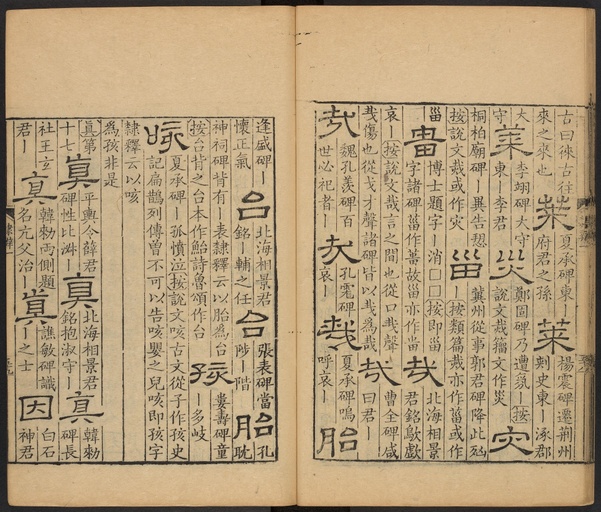 古曰徠古往
來之來也
萊
夏承碑東｜
府君之孫
萊
楊震碑遷荆州
刺史東｜涿郡
大
守
萊
李翊碑大守
東｜李君
災
鄭固碑乃遭氛｜按
說文烖籀文作災
灾
桐柏廟碑｜異告愬
按說文烖或作灾
甾
冀州從事郭君碑降此
｜按類篇烖亦作菑或作
甾
博士題字｜消□□按即甾
字諸碑甾作葘故甾亦作
哉
北海相景
君銘歍歔
哀｜按說文哉言之間也從口𢦏聲
烖傷也從戈才聲諸碑皆以烖為哉
哉
曹全碑咸
曰君｜
哉
魏孔羨碑百
世必祀者｜
孔霅碑
哀｜
哉
夏承碑嗚
呼哀｜
胎
逢盛碑｜
懷正氣
台
北海相景君
銘｜輔之任
台
張表碑當
陟｜階
胎
孔
耽
神祠碑背有｜表隸釋云以胎為台
按台背之台本作鮐詩魯頌作台
孩
婁壽碑童
｜多岐
咳
夏承碑｜孤憤泣按說文咳古文從子作孩史
記扁鵲列傳曾不可以告咳嬰之兒咳即孩字
隸釋云以咳
為孩非是
真第
十七
真
平輿令薛君
碑性比淋｜
真
北海相景君
銘抱淑守｜
真
韓勑
碑長
社王玄
君｜
真
韓勑碑兩側題
名元父治｜
真
譙敏碑識
｜之士
因
白石
神君